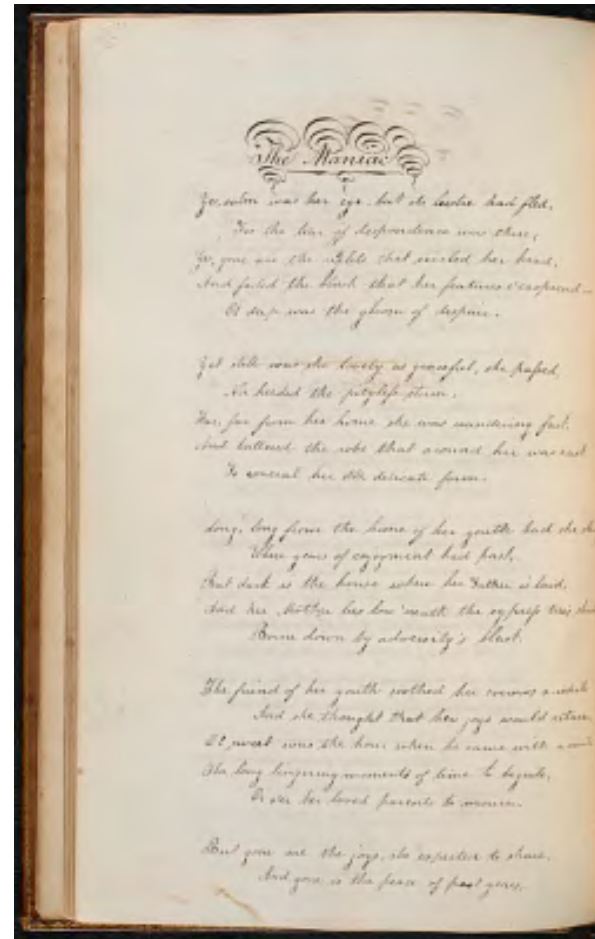 The Maniac
Yes, calm was her eye, but its lustre had fled,
For the tear of despondence was there,
Yes, gone are the that her head,
And faded the blush that her features
O deep was the gloom of despair.
Yet still was she lovely as graceful, she passed,
Nor heeded the pityless storm.
Far, far from her home she was wandering fast,
And tattered the robe that around her was cast
To conceal her delicate form.
Long, long from the home of her youth had she
Where years of enjoyment had past,
But dark is the house where her Father is laid,
And her Mother lies low 'neath the cypress tree's
Borne down by adversity's blast.
The friend of her youth soothed her sorrows a while
And she thought that her joys would return,
O sweet was the hour when he came with a
The long lingering moments of time to beguile,
Or o'er her loved parents to mourn.
But gone are the joys, she expected to share,
And gone is the peace of past years,